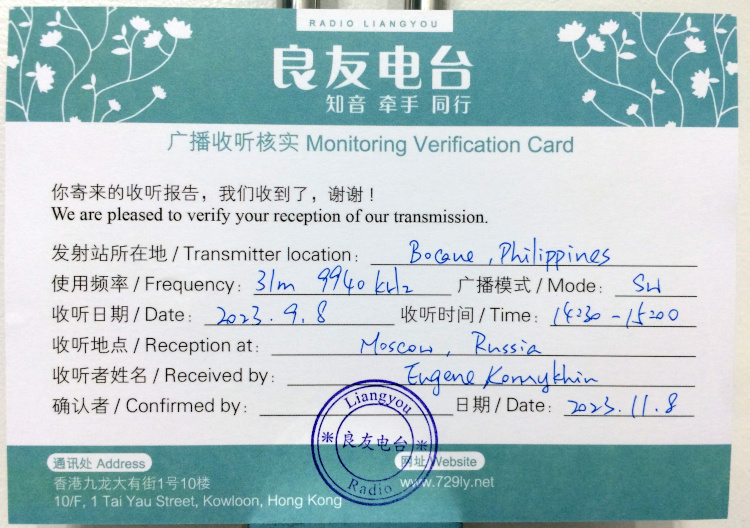 RADIO LIANGYOU
良友电台
知音 牵手 同行
广播收听核实 Monitoring Verification Card
你寄来的收听报告，我们收到了，谢谢！
We are pleased to verify your reception of our transmission.
发射站所在地 / Transmitter location: Bocaue, Philippines
使用频率 / Frequency: 31m 9940 kHz 广播模式 / Mode: SW
收听日期 / Date: 2023.9.8 收听时间 / Time: 14:30-15:00
收听地点 / Reception at: Moscow, Russia
收听者姓名 / Received by: Eugene Konnykhin
确认者 / Confirmed by: 日期 / Date: 2023.11.8
Liangyou
良友电台
Radio
通讯处 Address 网址 Website
香港九龙大有街1号10楼 www.729ly.net
10/F, 1 Tai Yau Street, Kowloon, Hong Kong